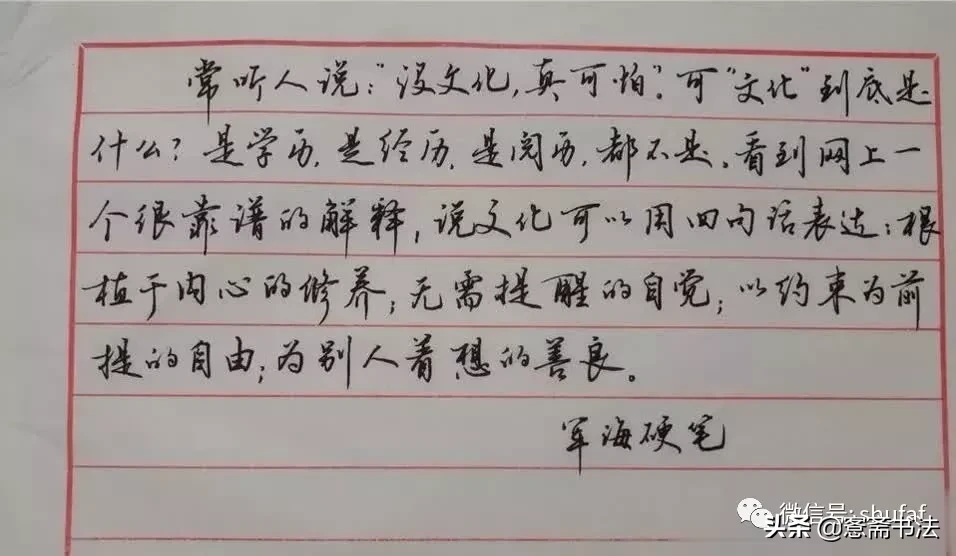 常听人说："没文化,真可怕"。可"文化"到底是
什么？是学历,是经历,是阅历,都不是。看到网上一
个很靠谱的解释,说文化可以用四句话表达：根
植于内心的修养；无需提醒的自觉；以约束为前
提的自由；为别人着想的善良。
军海硬笔
微信号: shufaf
头条@窓斋书法